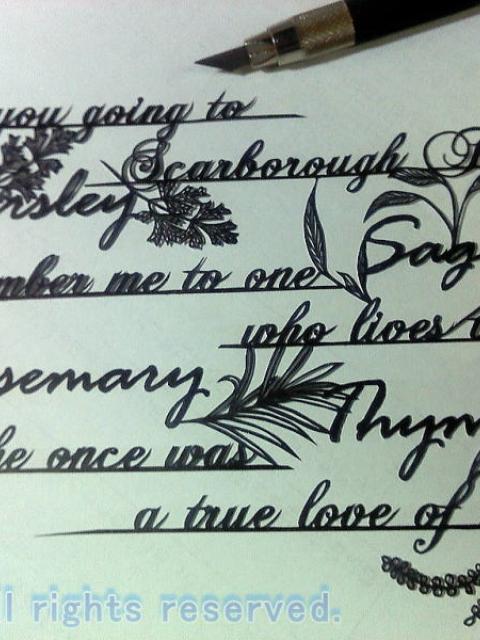 you going to
Scarborough
ersley
Sag
mber me to one
who lives
semary
Thym
he once was
a true love of
ll rights reserved.